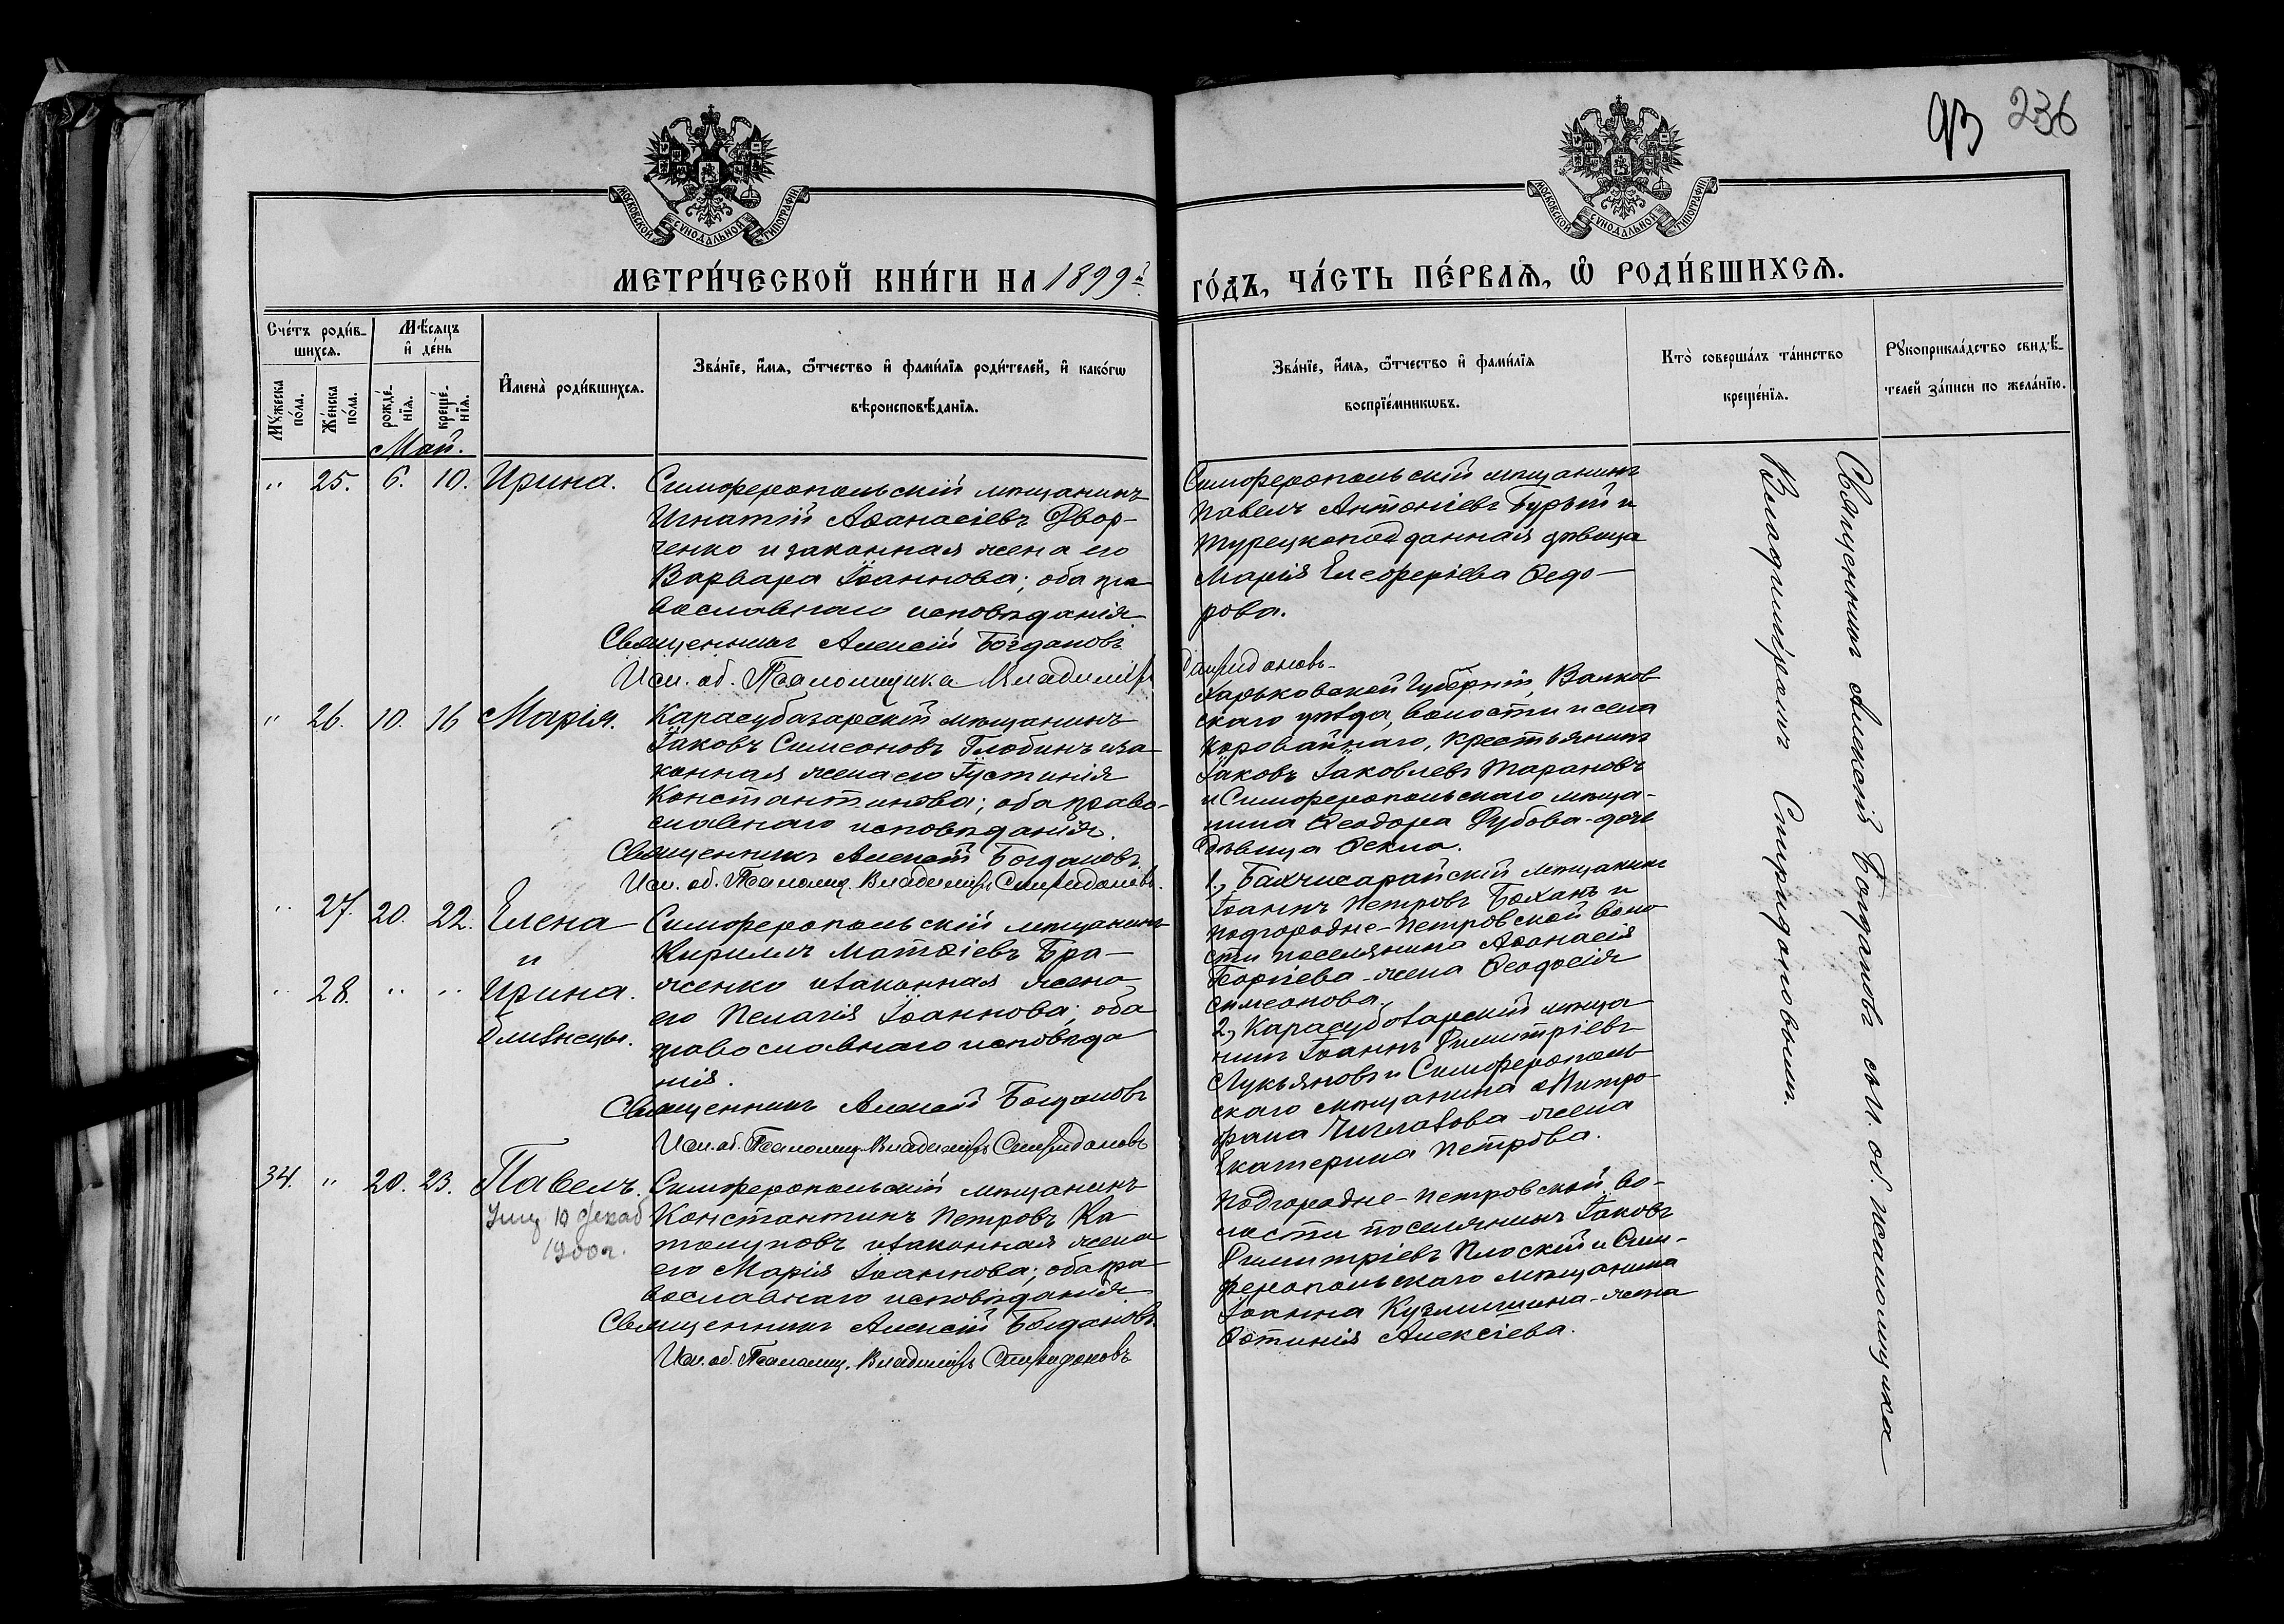 93 236
МОСКОВСКОЙ СѴНОДАЛЬНОЙ ТИПОГРАФІИ
МОСКОВСКОЙ СѴНОДАЛЬНОЙ ТИПОГРАФІИ
МЕТРИ́ЧЕСКОЙ КНИ́ГИ НА 1899й
ГО́ДЪ, ЧА́СТЬ ПЕ́РВАѦ, Ѽ РОДИ́ВШИХСѦ.
Сче́тъ роди́в-
шихсѧ.
Мꙋ́жеска по́ла.
Же́нска по́ла.
Мѣ́сѧцъ
и҆ де́нь
рожде́-
нїѧ.
креще́-
нїѧ.
И҆мена̀ роди́вшихсѧ.
Зва́нїе, и҆́мѧ, ѻ҆́тчество и҆ фами́лїѧ роди́телей, и҆ како́гѡ
вѣроисповѣ́данїѧ.
Зва́нїе, и҆́мѧ, ѻ҆́тчество и҆ фами́лїѧ
воспрїе́мникѡвъ.
Кто̀ соверша́лъ та́инство
креще́нїѧ.
Рꙋкоприкла́дство свидѣ́-
телей за́писи по жела́нїю.
Май.
" 25. 6. 10. Ирина.
Симферопольскій мѣщанинъ
Игнатій Аѳанасіевъ Двор-
ченко и законная жена его
Варвара Іоаннова; оба пра
вославнаго исповѣданія
Священникъ Алексій Богдановъ
Исп. об. Псаломщика Владиміръ
Спиридоновъ
Симферопольскій мѣщанинъ
Павелъ Антоніевъ Бурый и
турецкоподданная дѣвица
Марія Елеоферіева Ѳедо-
рова.
" 26. 10. 16 Марія.
Карасубазарскій мѣщанинъ
Іаковъ Симеоновъ Глобинъ иза
конная жена его Іустинія
Константинова; оба право-
славнаго исповѣданія.
Священникъ Алексій Богдановъ.
Исп. об. Псаломщ. Владиміръ Спиридоновъ.
Харьковской губерніи, Валков
скаго уѣзда, волости и села
Коровайнаго, крестьянинъ
Іаковъ Іаковлевъ Тарановъ
и Симферопольскаго мѣща-
нина Ѳеодора Дубова-дочь
дѣвица Ѳекла.
" 27. 20. 22. Елена
и
" 28. " " Ирина.
близнецы.
Симферопольскій мѣщанинъ
Кириллъ Матѳіевъ Бра-
женко изаконная жена
его Пелагія Іоаннова; оба
православнаго исповѣда
нія.
Священникъ Алексій Богдановъ
Исп. об. Псаломщ. Владиміръ Спиридоновъ
1., Бахчисарайскій мѣщанинъ
Іоаннъ Петровъ Боханъ и
Подгородне-Петровской воло
сти поселянина Аѳанасія
Георгіева-жена Ѳеодосія
Симеонова.
2., Карасубазарскій мѣща
нинъ Іоаннъ Димитріевъ
Лукьяновъ и Симферополь
скаго мѣщанина Митро
фана Чиглазова-жена
Екатерина Петрова.
34. " 20. 23. Павелъ.
10 декаб
1900 г.
Симферопольскій мѣщанинъ
Константинъ Петровъ Ка
толуповъ изаконная жена
его Марія Іоаннова; оба пра
вославнаго исповѣданія
Священникъ Алексій Богдановъ.
Исп. об. Псаломщ. Владиміръ Спиридоновъ
Подгородне-Петровской во-
лости поселянинъ Іаковъ
Димитріевъ Плоскій и Сим-
феропольскаго мѣщанина
Іоанна Кузмишина-жена
Фотинія Алексіева.
Священникъ Алексій Богдановъ съ И. об. псаломщика
Владиміромъ Спиридоновымъ.